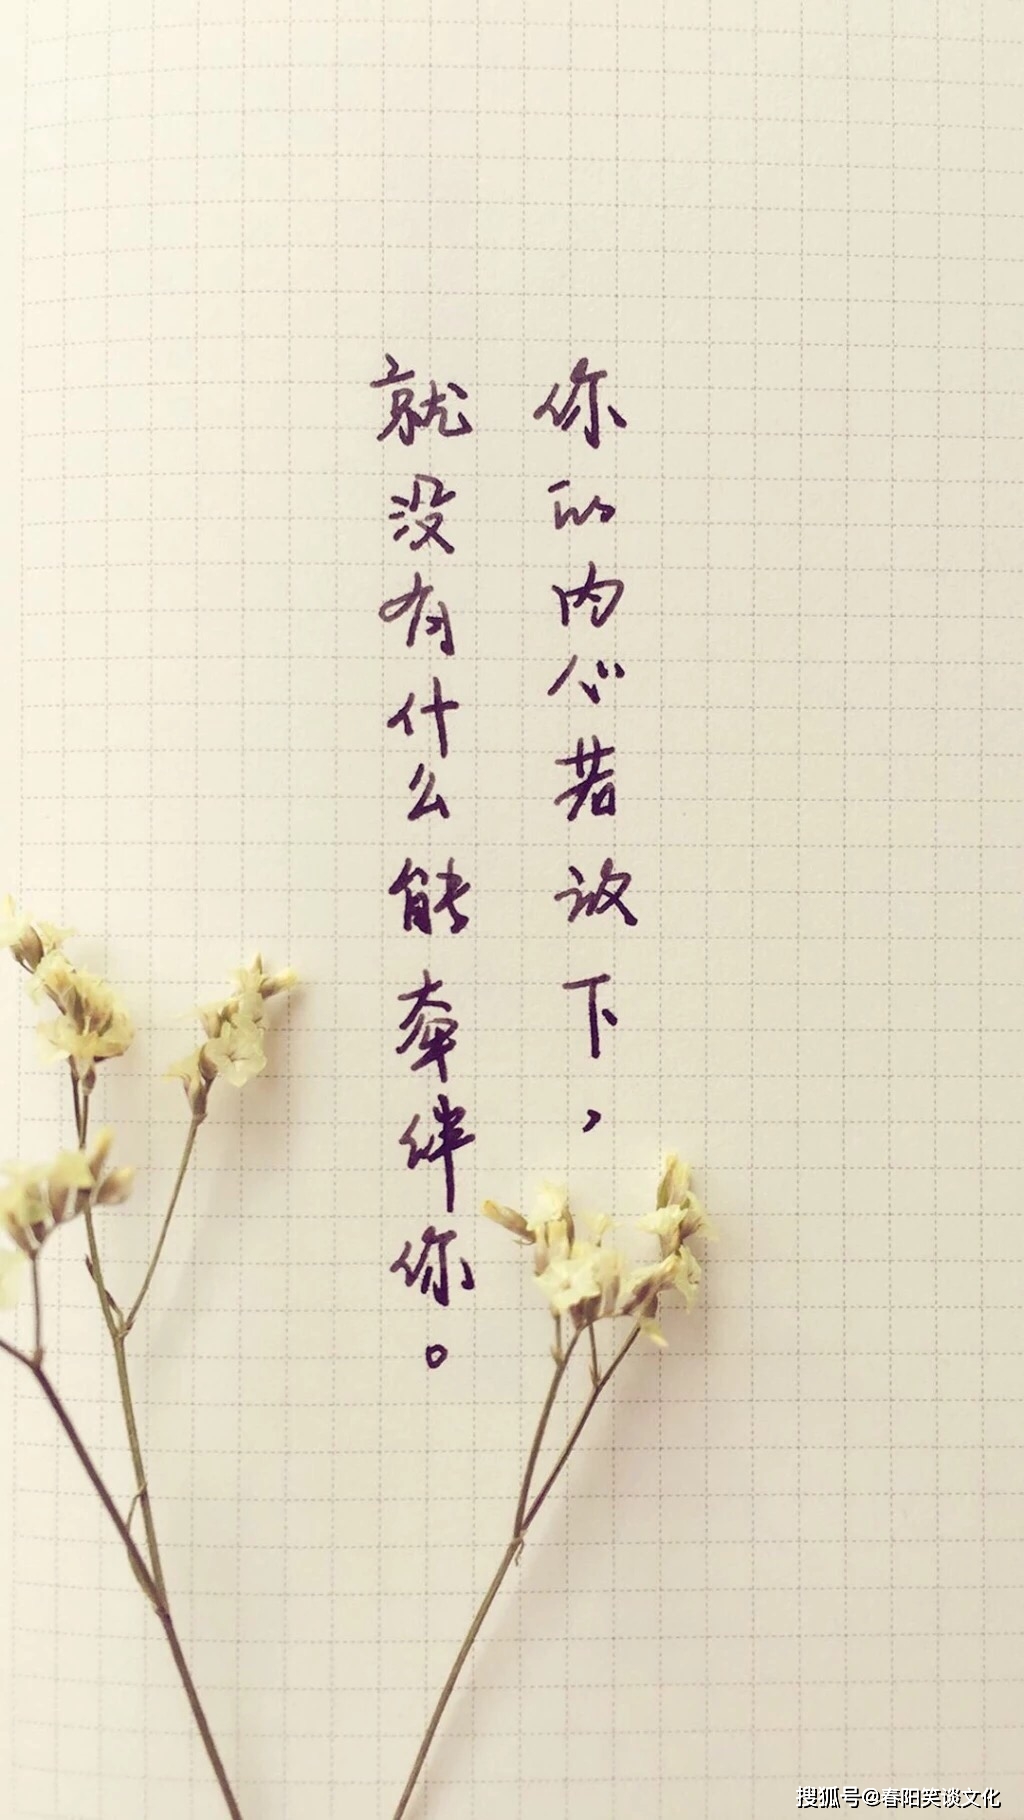 你的内心若放下，
就没有什么能牵绊你。
搜狐号@春阳笑谈文化